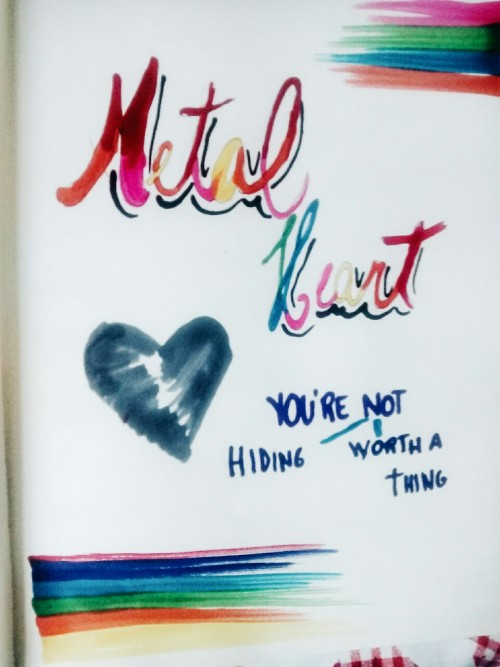 Metal
Heart
YOU'RE NOT
HIDING WORTH A
THING